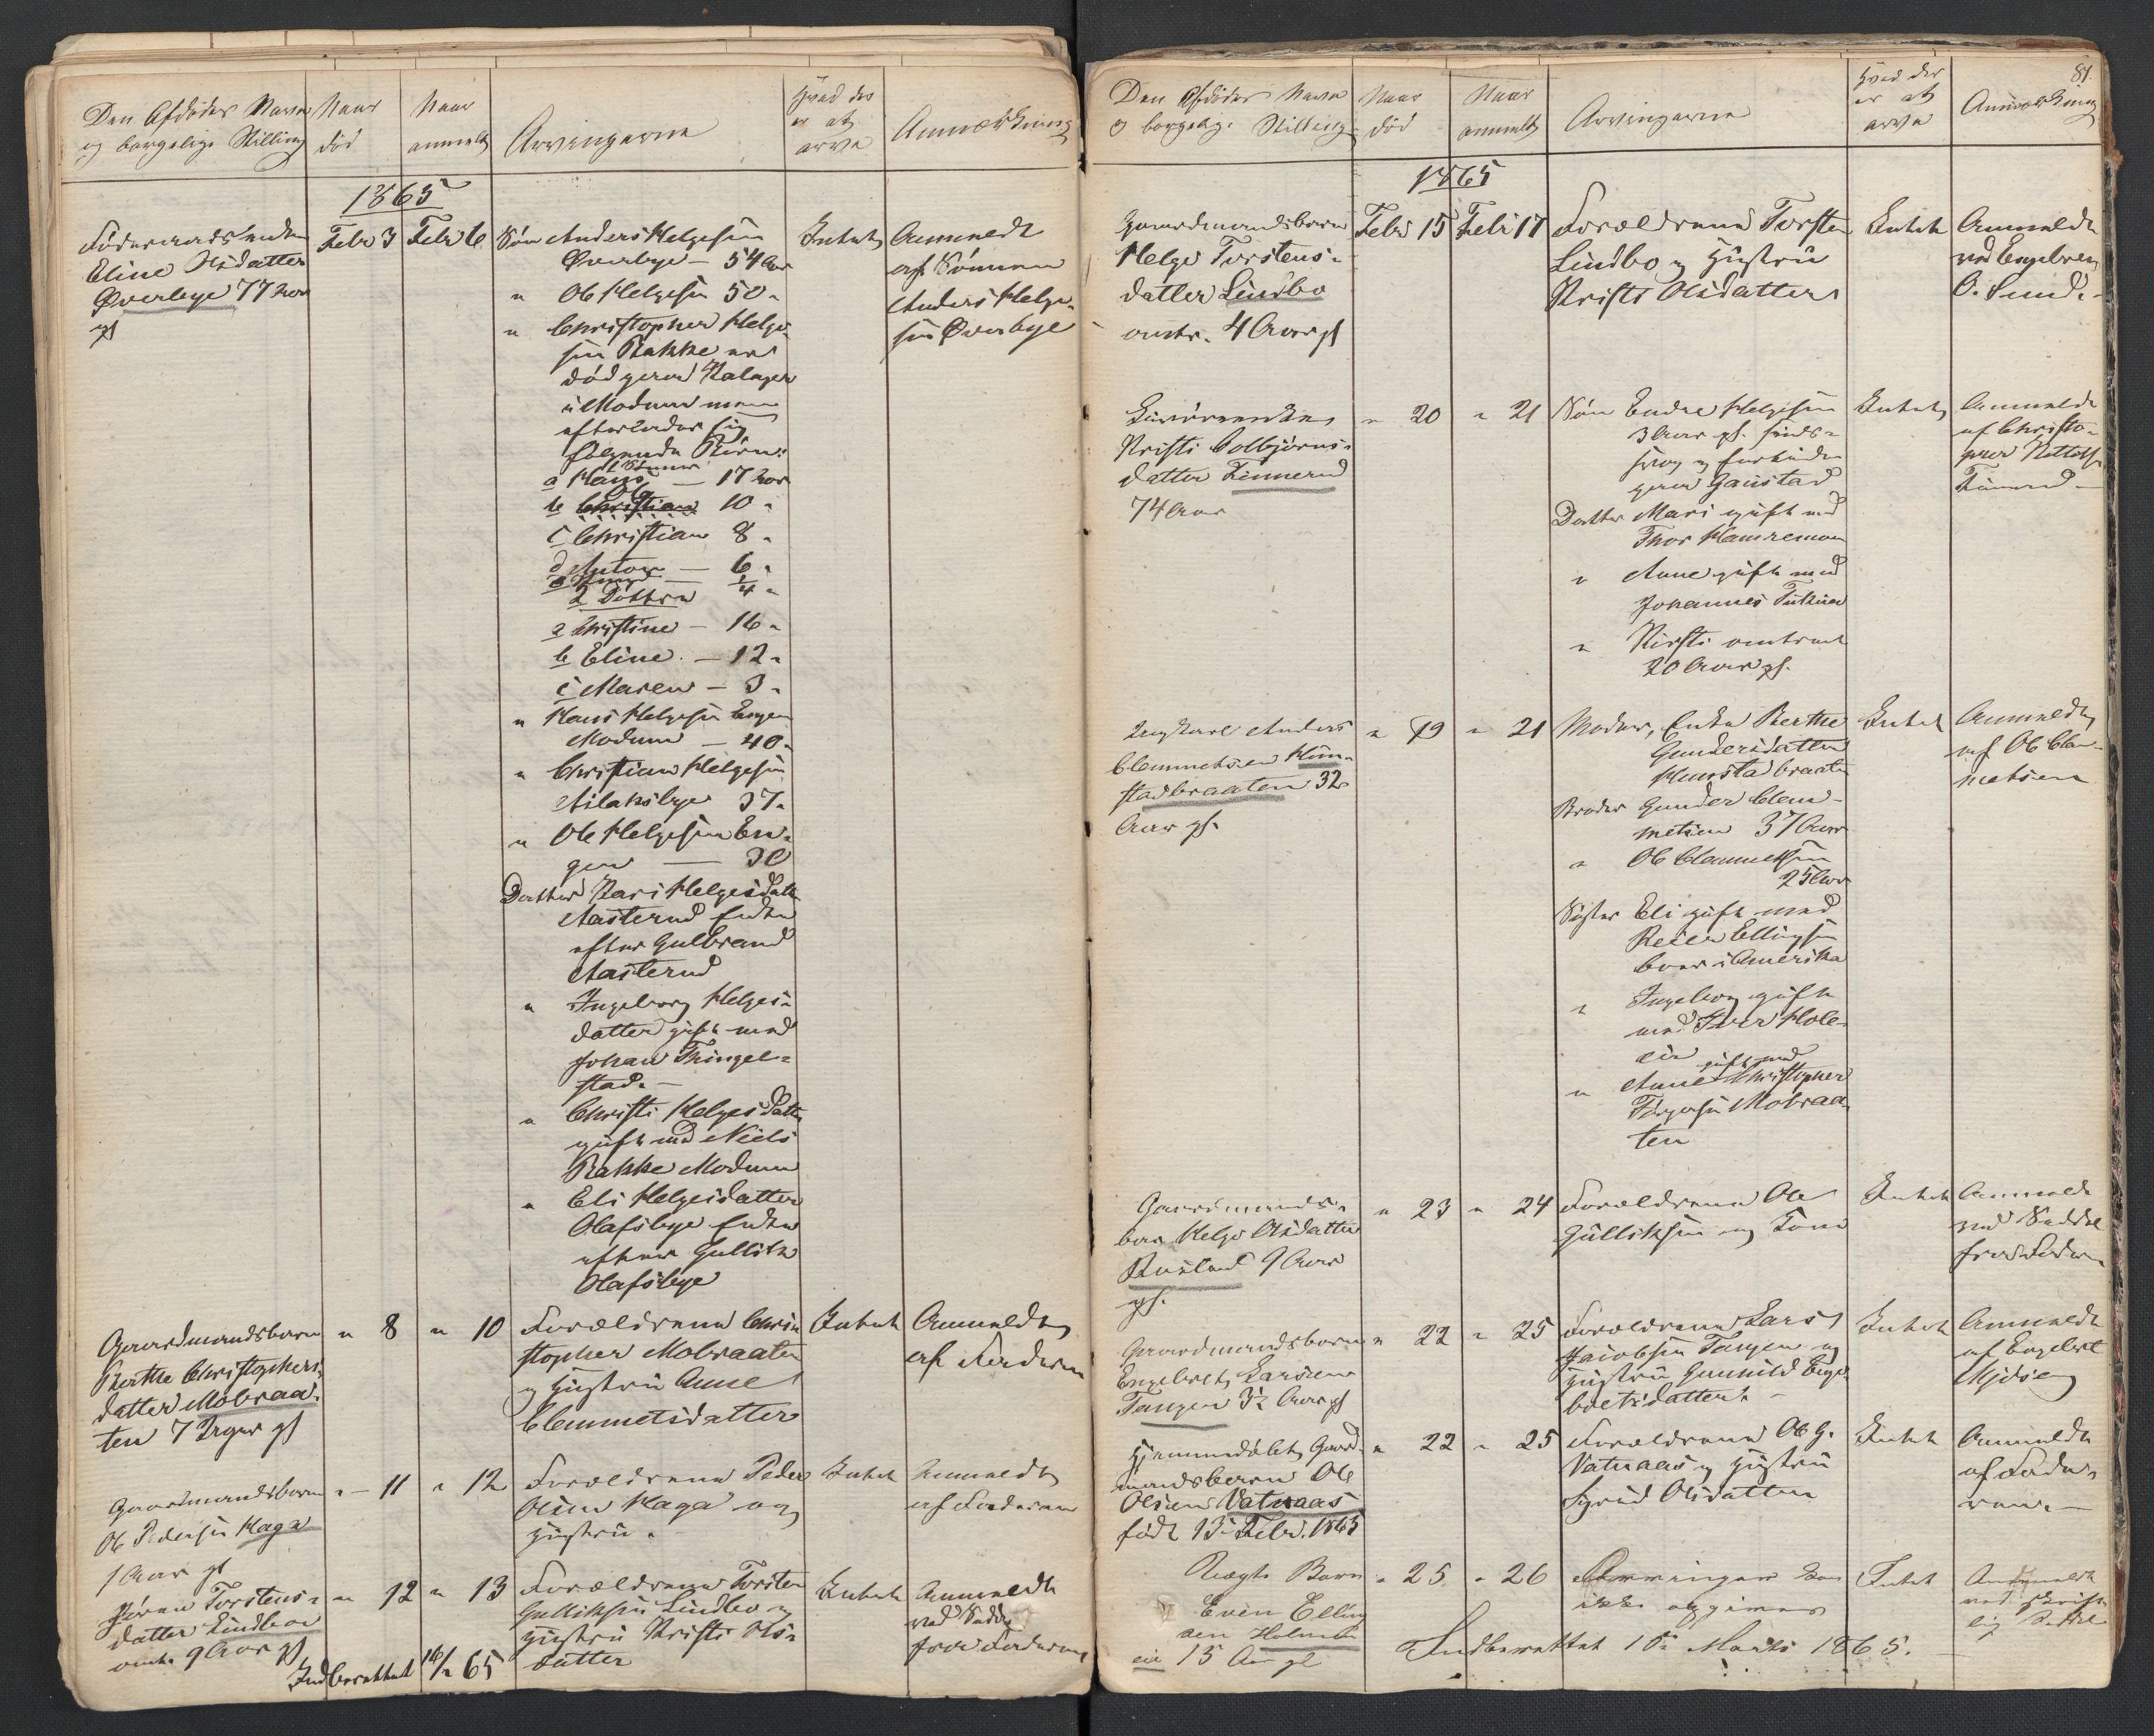 Den Afdödes Navn
og borgelige Stilling
Naar
död
Naar
anmeldt
Arvingerne
Hvad der
er at
arve
Anmærkning
1865
Föderaadsenken
Eline Olsdatter
Øverbye 77 Aar
gl
Febr 3
Febr 6
Søn Anders Helgesen
Øverbye - 54 Aar
" Ole Helgesen 50 "
" Christopher Helge-
sen Rakke er
død
i Modum men
efterlader sig
følgende Börn:
Sönner
a Hans — 17 Aar
Ole
b Christian 10 "
c Christian 8 "
d Anton — 6 "
e Knud — 1/4 "
2 Döttre
a Christine - 16 "
b Eline - 12 "
c Maren - 3 "
" Hans Helgesen Engen
Modum — 40 "
" Christian Helgesen
Aslaksbye 37 "
" Ole Helgesen En-
gen — 30
Datter Kari Helgesdatter
Aasterud Enke
efter Gulbrand
Aasterud
" Ingeborg Helges-
datter gift med
Johan Thingel-
stad. -
" Christi Helgesdatter
gift med Niels
Rakke Modum
" Eli Helgesdatter
Olafsbye Enke
efter Gullik
Olafsbye
Intet
Anmeldt
af Sønnen
Anders Helge-
sen Øverbye
Gaardmandsbarn
Berthe Christophers-
datter Mobraa-
ten 7 Uger gl
" 8
" 10
Forældrene Chri-
stopher Mobraaten
og Hustru Anne
Clemmetsdatter
Intet
Anmeldt
af Faderen
Gaardmandsbarn
Ole Pedersen Haga
1 Aar gl
" 11
" 12
Forældrene Peder
Olsen Haga og
Hustru.
Intet
Anmeldt
af Faderen
Jøran Torstens-
datter Lindbo
omtr. 9 Aar gl
" 12
" 13
Forældrene Torsten
Gulliksen Lindbo og
Hustru Kristi Ols-
datter
Intet
Anmeldt
ved Seddel
fra Faderen
Indberettet 16/2 65
81.
Den Afdödes Navn
og borgelige Stilling
Naar
död
Naar
anmeldt
Arvingerne
Hvad der
er at
arve
Anmærkning
1865
Gaardmandsbarn
Helge Torstens-
datter Lindbo
omtr. 4 Aar gl
Febr 15
Febr 17
Forældrene Torsten
Lindbo og Hustru
Kristi Olsdatter
Intet
Anmeldt
ved Engebret
O. Lund. -
Kristi Colbjørns-
datter Finnerud
74 Aar
" 20
" 21
Søn Endre Helgesen
3 Aar gl. sinds-
svag og
Gaustad
Datter Mari gift med
Thor Hamremoen
" Anne gift med
Johannes
" Kirsti omtrent
20 Aar gl.
Intet
Anmeldt
af Christo-
pher
Finnerud -
Ungkarl Anders
Clemmetsen Hun-
stadbraaten 32
Aar gl.
" 19
" 21
Moder, Enke Berthe
Gundersdatter
Hunstadbraaten
Broder Gunder Clem-
metsen 37 Aar
" Ole Clemmetsen
25 Aar
Søster Eli gift med
Reier Ellingsen
boer i Amerika
" Ingeborg gift
med Iver Hole-
eie
gift med
" Anne Christopher
Mobraa-
ten
Intet
Anmeldt
af Ole Clem-
metsen
Gaardmands-
barn Helge Olsdatter
Rustand 9 Aar
gl.
" 23
" 24
Forældrene Ole
Gulliksen og Kone
Intet
Anmeldt
ved Seddel
fra Faderen
Gaardmandsbarn
Engebret Larsen
Tangen 3½ Aar gl
" 22
" 25
Forældrene Lars
Jacobsen Tangen og
Hustru Gunnild Enge-
bretsdatter. -
Intet
Anmeldt
af Engebret
Mjøseng
Hjemmedøbt Gaard-
mandsbarn Ole
Olsen Vatnaas
født 13de Febr. 1865
" 22
" 25
Forældrene Ole G.
Vatnaas og Hustru
Sigrid Olsdatter
Intet
Anmeldt
af Fade-
ren. -
Uægte Barn
Even Elling
sen Holmen
eie 15 Aar gl
" 25
" 26
Arvinger kan
ikke opgives
Intet
Anmeldt
ved Skrift-
lig Seddel
Indberettet 1ste Marts 1865.